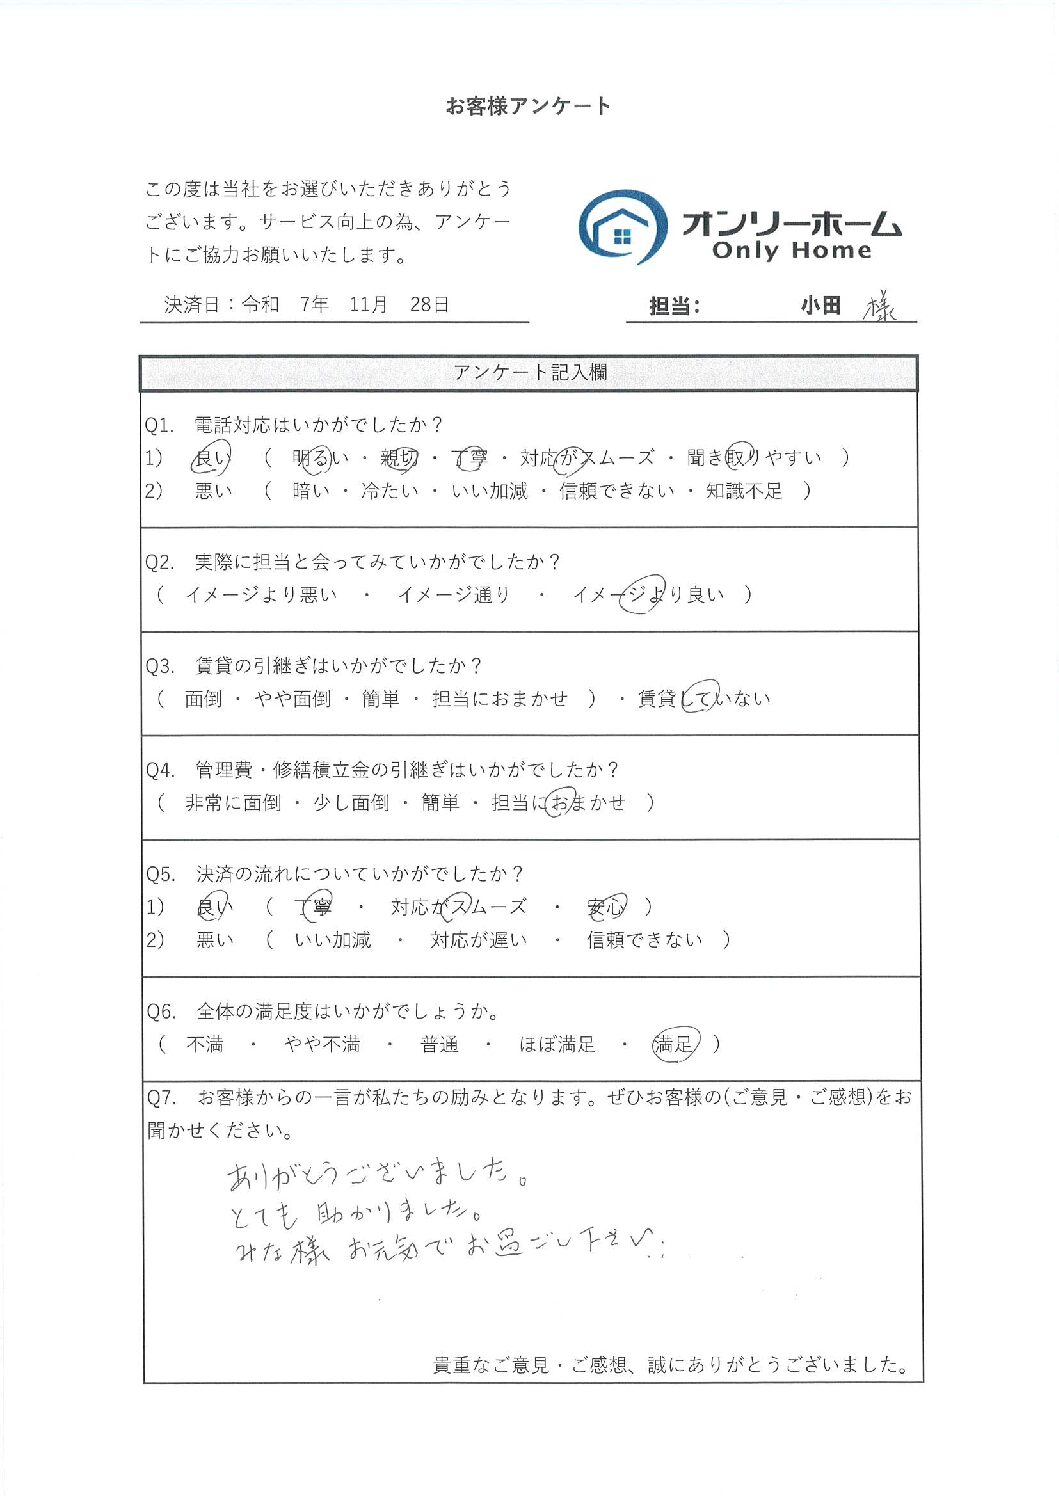 お客様アンケート
この度は当社をお選びいただきありがとう
ございます。サービス向上の為、アンケー
トにご協力お願いいたします。
オンリーホーム
Only Home
決済日：令和　7年　11月　28日
担当：　小田　様
アンケート記入欄
Q1.　電話対応はいかがでしたか？
1)　良い　（　明るい ・ 親切 ・ 丁寧 ・ 対応がスムーズ ・ 聞き取りやすい　）
2)　悪い　（　暗い ・ 冷たい ・ いい加減 ・ 信頼できない ・ 知識不足　）
Q2.　実際に担当と会ってみていかがでしたか？
（　イメージより悪い　・　イメージ通り　・　イメージより良い　）
Q3.　賃貸の引継ぎはいかがでしたか？
（　面倒 ・ やや面倒 ・ 簡単 ・ 担当におまかせ　）　・ 賃貸していない
Q4.　管理費・修繕積立金の引継ぎはいかがでしたか？
（　非常に面倒 ・ 少し面倒 ・ 簡単 ・ 担当におまかせ　）
Q5.　決済の流れについていかがでしたか？
1)　良い　（　丁寧　・　対応がスムーズ　・　安心　）
2)　悪い　（　いい加減　・　対応が遅い　・　信頼できない　）
Q6.　全体の満足度はいかがでしょうか。
（　不満　・　やや不満　・　普通　・　ほぼ満足　・　満足　）
Q7.　お客様からの一言が私たちの励みとなります。ぜひお客様の(ご意見・ご感想)をお
聞かせください。
ありがとうございました。
とても助かりました。
みな様 お元気でお過ごし下さい
貴重なご意見・ご感想、誠にありがとうございました。